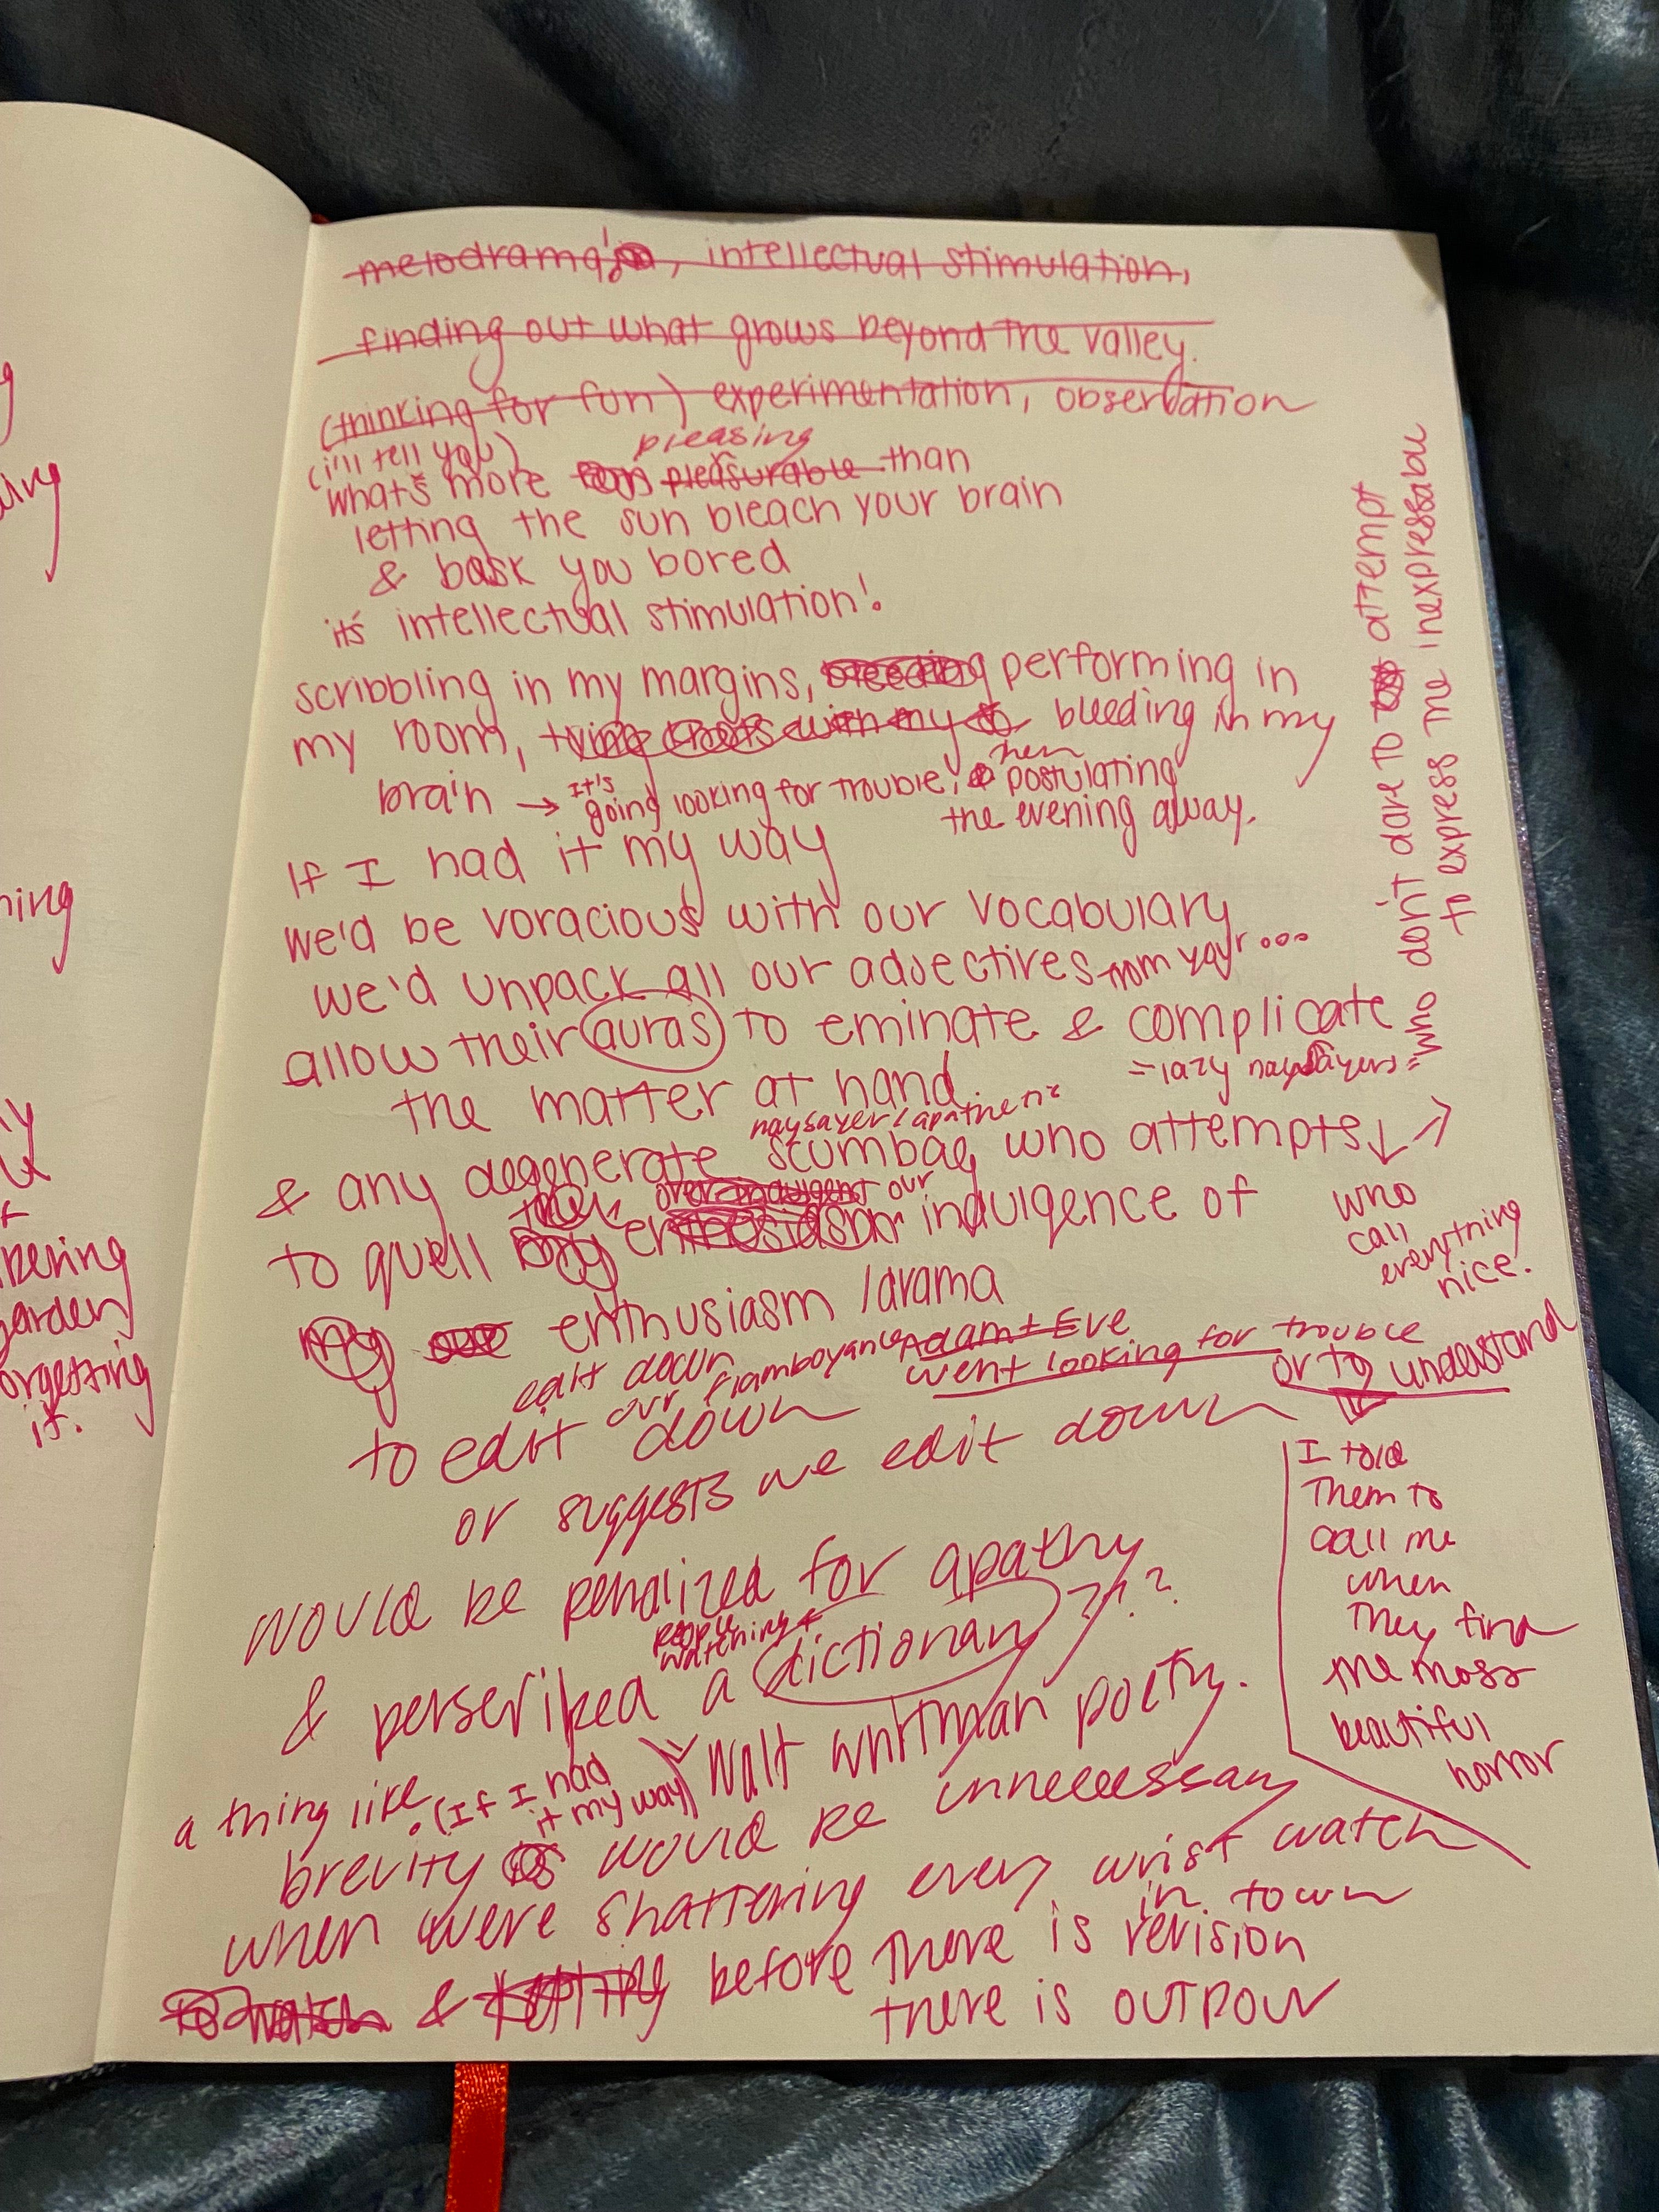 melodrama!, intellectual stimulation,
finding out what grows beyond the valley.
(thinking for fun) experimentation, observation
(i'll tell you)
pleasing
what's more pleasurable than
letting the sun bleach your brain
& bask you bored
it's intellectual stimulation!
scribbling in my margins, bleeding performing in
my room, bleeding in my
brain → it's going looking for trouble, then postulating
the evening away.
If I had it my way
we'd be voracious with our vocabulary
we'd unpack all our adjectives from
allow their auras to eminate & complicate
the matter at hand
= lazy naysayers =
who don't dare to attempt
to express the inexpressable
naysayer / apathetic
& any degenerate scumbag who attempts ↓ ↗
over indulgent our
to quell indulgence of
who
call
everything
nice!
my our enthusiasm / drama
edit down
our flamboyance
Adam + Eve
went looking for trouble
or to understand
to edit down
or suggests we edit down
I told
them to
call me
when
they find
the moss
beautiful
horror
would be penalized for apathy
people
watching +
& perscribed a dictionary ???
a thing like Walt Whitman poetry.
(If I had
it my way)
brevity would be unnecessary
when we're shattering every wrist watch
in town
& before there is revision
there is outpour
g
ning
garden
orgetting
it.